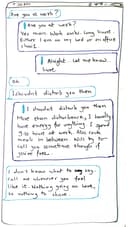 Are you at work?
Are you at work?
Yes mam. Work sucks. Long hours.
Either I am on my bed or on office
chair.
Alright. Let me know.
love
Ok
I shouldnt disturb you then
I shouldnt disturb you then
More than disturbance, I hardly
have energy for anything. I spend
hours at work. Also cook
meals in between. Will try to
call you sometime though if
you're free.
I don't know what to say.
Call me whenever you feel
like it. Nothing going on here,
so nothing to share